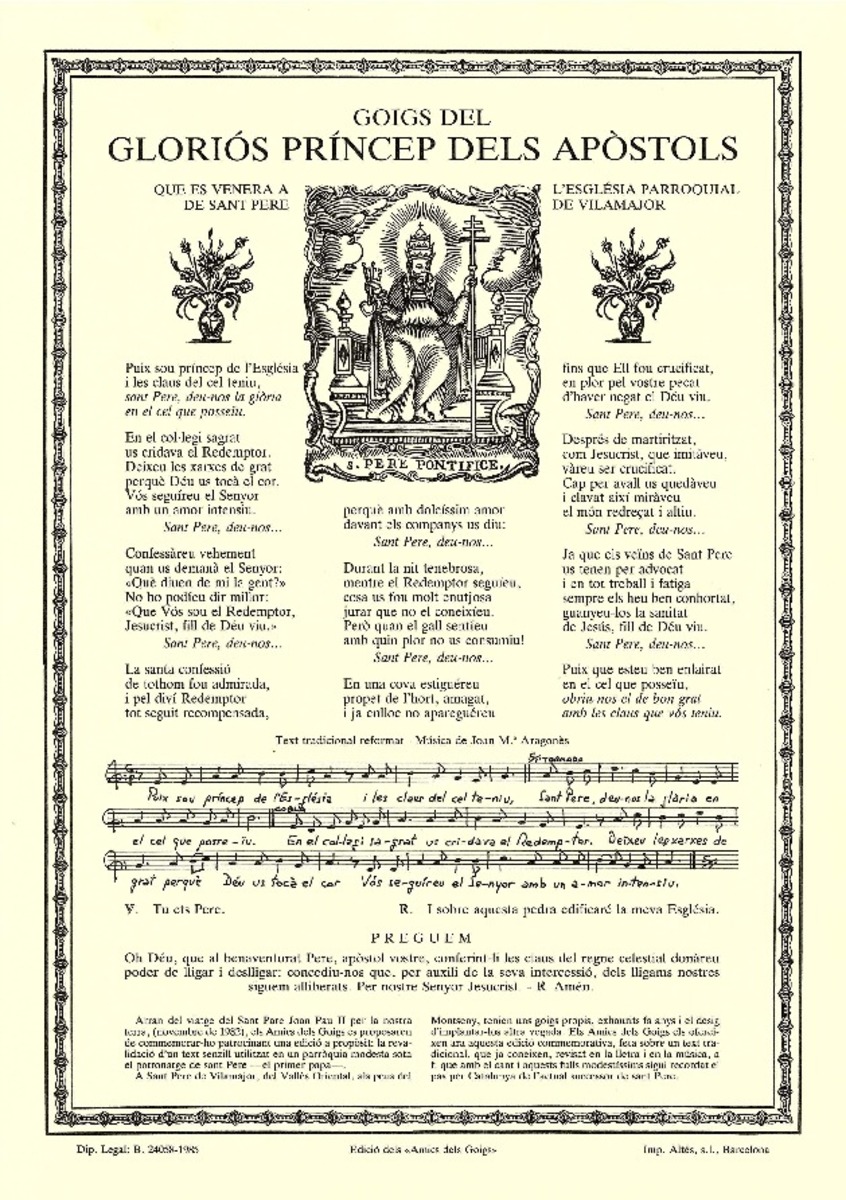 GOIGS DEL
GLORIÓS PRÍNCEP DELS APÒSTOLS
QUE ES VENERA A L'ESGLÉSIA PARROQUIAL
DE SANT PERE DE VILAMAJOR
S. PERE PONTIFICE.
Puix sou príncep de l'Església
i les claus del cel teniu,
sant Pere, deu-nos la glòria
en el cel que posseïu.
En el col·legi sagrat
us cridava el Redemptor.
Deixeu les xarxes de grat
perquè Déu us tocà el cor.
Vós seguíreu el Senyor
amb un amor intensiu.
Sant Pere, deu-nos...
Confessàreu vehement
quan us demanà el Senyor:
«Què diuen de mi la gent?»
No ho podíeu dir millor:
«Que Vós sou el Redemptor,
Jesucrist, fill de Déu viu.»
Sant Pere, deu-nos...
La santa confessió
de tothom fou admirada,
i pel diví Redemptor
tot seguit recompensada,
perquè amb dolcíssim amor
davant els companys us diu:
Sant Pere, deu-nos...
Durant la nit tenebrosa,
mentre el Redemptor seguíeu,
cosa us fou molt enutjosa
jurar que no el coneixíeu.
Però quan el gall sentíeu
amb quin plor no us consumiu!
Sant Pere, deu-nos...
En una cova estiguéreu
propet de l'hort, amagat,
i ja enlloc no apareguéreu
fins que Ell fou crucificat,
en plor pel vostre pecat
d'haver negat el Déu viu.
Sant Pere, deu-nos...
Després de martiritzat,
com Jesucrist, que imitàveu,
vàreu ser crucificat.
Cap per avall us quedàveu
i clavat així miràveu
el món redreçat i altiu.
Sant Pere, deu-nos...
Ja que els veïns de Sant Pere
us tenen per advocat
i en tot treball i fatiga
sempre els heu ben conhortat,
guanyeu-los la sanitat
de Jesús, fill de Déu viu.
Sant Pere, deu-nos...
Puix que esteu ben enlairat
en el cel que posseïu,
obriu-nos el de bon grat
amb les claus que vós teniu.
Text tradicional reformat - Música de Joan M.ª Aragonès
TORNADA
Puix sou príncep de l'Es-glésia i les claus del cel te-niu, Sant Pere, deu-nos la glòria en
COBLA
el cel que posse-ïu. En el col·legi sa-grat us cri-dava el Redemp-tor. Deixeu les xarxes de
grat perquè Déu us tocà el cor Vós se-guíreu el Se-nyor amb un a-mor in-ten-siu.
V. Tu ets Pere. R. I sobre aquesta pedra edificaré la meva Església.
PREGUEM
Oh Déu, que al benaventurat Pere, apòstol vostre, conferint-li les claus del regne celestial donàreu
poder de lligar i deslligar: concediu-nos que, per auxili de la seva intercessió, dels lligams nostres
siguem alliberats. Per nostre Senyor Jesucrist. - R. Amén.
Arran del viatge del Sant Pare Joan Pau II per la nostra
terra, (novembre de 1982), els Amics dels Goigs es proposaren
de commemorar-ho patrocinant una edició a propòsit: la reva-
lidació d'un text senzill utilitzat en un parròquia modesta sota
el patronatge de sant Pere —el primer papa—.
A Sant Pere de Vilamajor, del Vallès Oriental, als peus del
Montseny, tenien uns goigs propis, exhaurits fa anys i el desig
d'implantar-los altra vegada. Els Amics dels Goigs els oferei-
xen ara aquesta edició commemorativa, feta sobre un text tra-
dicional, que ja coneixen, revisat en la lletra i en la música, a
fi que amb el cant i aquests fulls modestíssims sigui recordat el
pas per Catalunya de l'actual successor de sant Pere.
Dip. Legal: B. 24058-1985 Edició dels «Amics dels Goigs» Imp. Altés, s.l., Barcelona